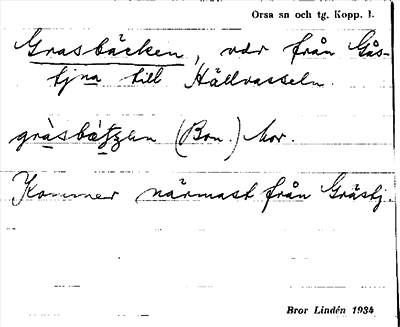 Orsa sn och tg. Kopp. l.
Grasbäcken, vdr från Gås-
tjna till Hällvasseln.
(Bon.) Mor.
Kommer närmast från Grästj.
Bror Lindén 1934